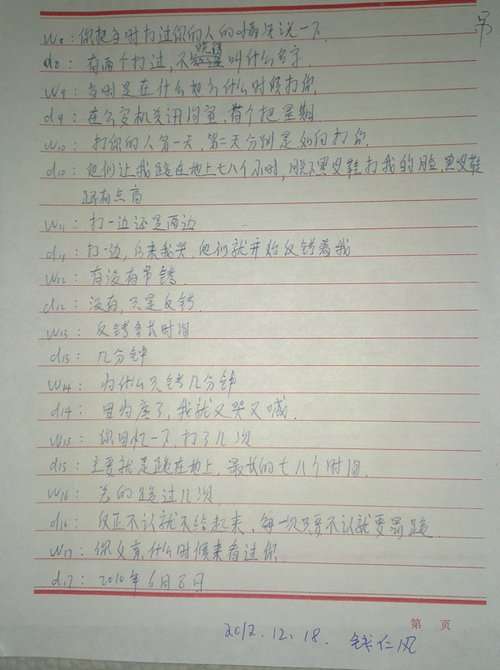 W8：你把当时打过你的人的情况说一下
d8：有两个打过，不晓得叫什么名字
W9：当时是在什么地方什么时候打你
d9：在公安机关讯问室，有个把星期
W10：打你的人第一天，第二天分别是如何打你
d10：他们让我跪在地上七八个小时，脱下黑皮鞋打我的脸，黑皮鞋
还有点高
W11：打一边还是两边
d11：打一边，后来我哭，他们就开始反铐着我
W12：有没有吊铐
d12：没有，只是反铐
W13：反铐多长时间
d13：几分钟
W14：为什么只铐几分钟
d14：因为疼了，我就又哭又喊
W15：你回忆一下，打了几次
d15：主要就是跪在地上，最长的七八个时间
W16：总的跪过几次
d16：反正不认就不给起来，每一次只要不认就要罚跪
W17：你父亲什么时候来看过你
d17：2010年6月8日
第 页
2012.12.18. 钱仁风